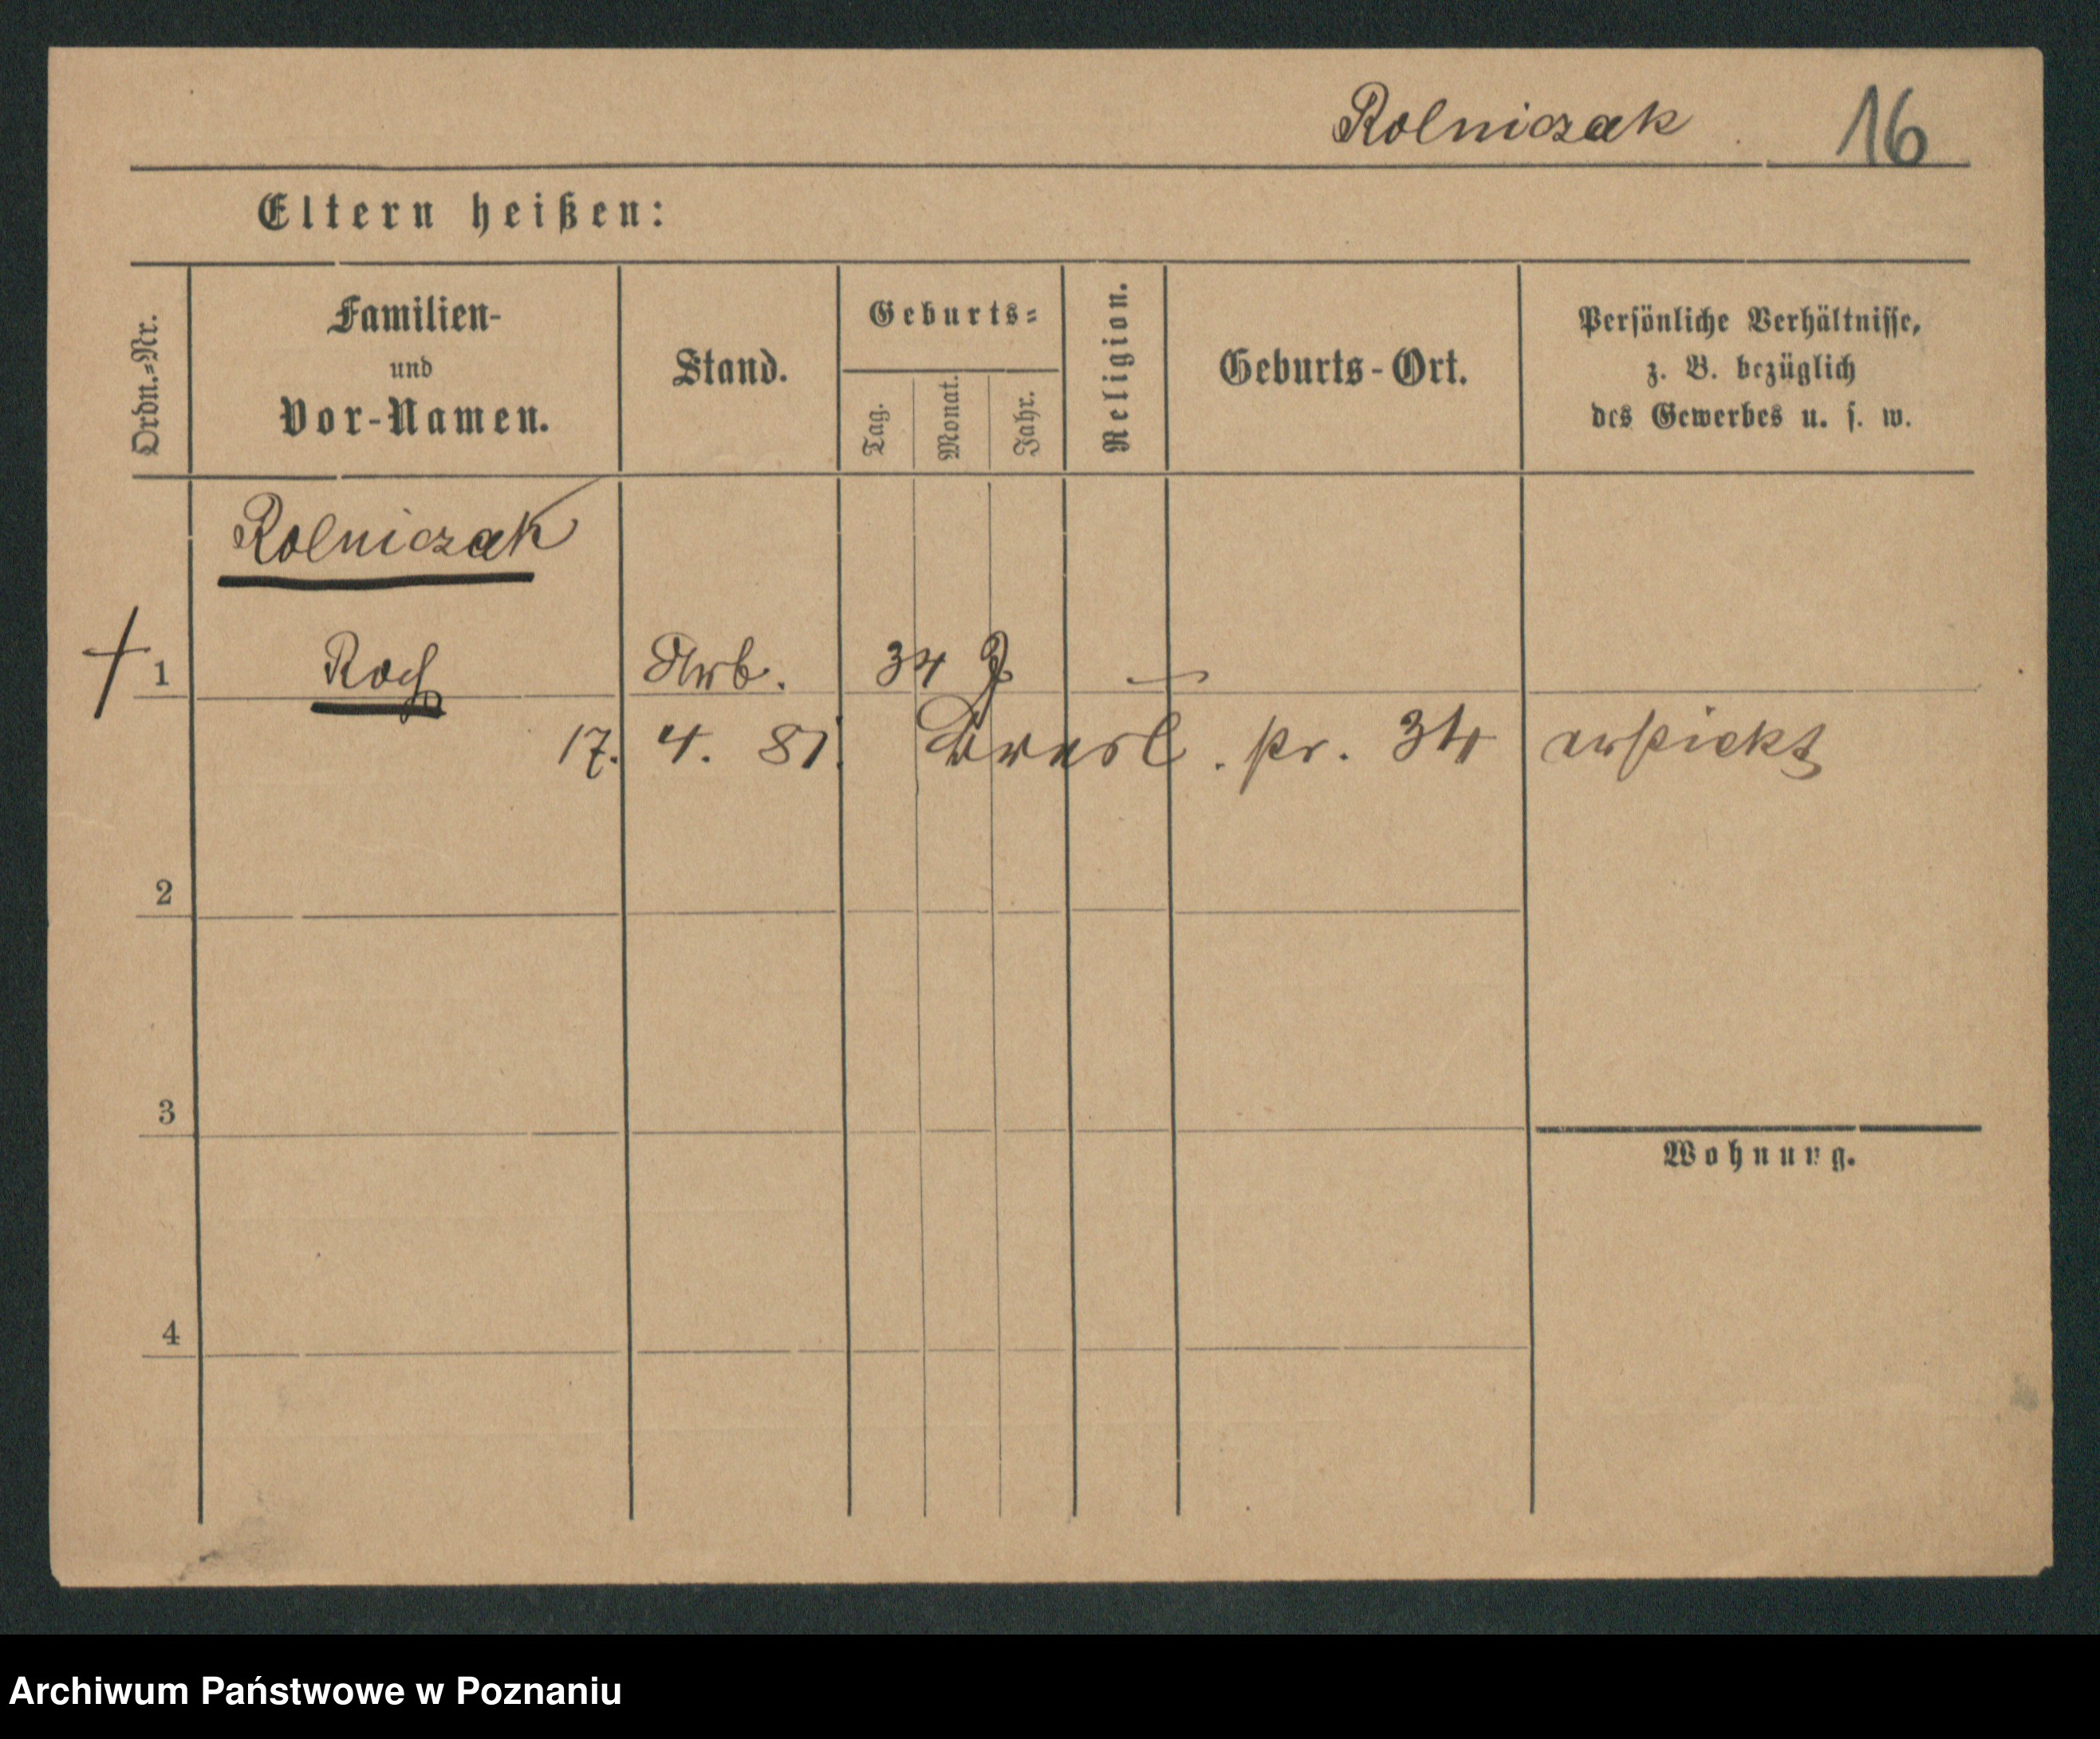 Rolniczak 16
Eltern heißen:
Ordn.=Nr.
Familien-
und
Vor-Namen.
Stand.
Geburts=
Tag.
Monat.
Jahr.
Religion.
Geburts-Ort.
Persönliche Verhältnisse,
z. B. bezüglich
des Gewerbes u. s. w.
Rolniczak
1 Roch Arb. 34 J –
17. 4. 81. Bresl. pr. 34
2
3
Wohnung.
4
Archiwum Państwowe w Poznaniu